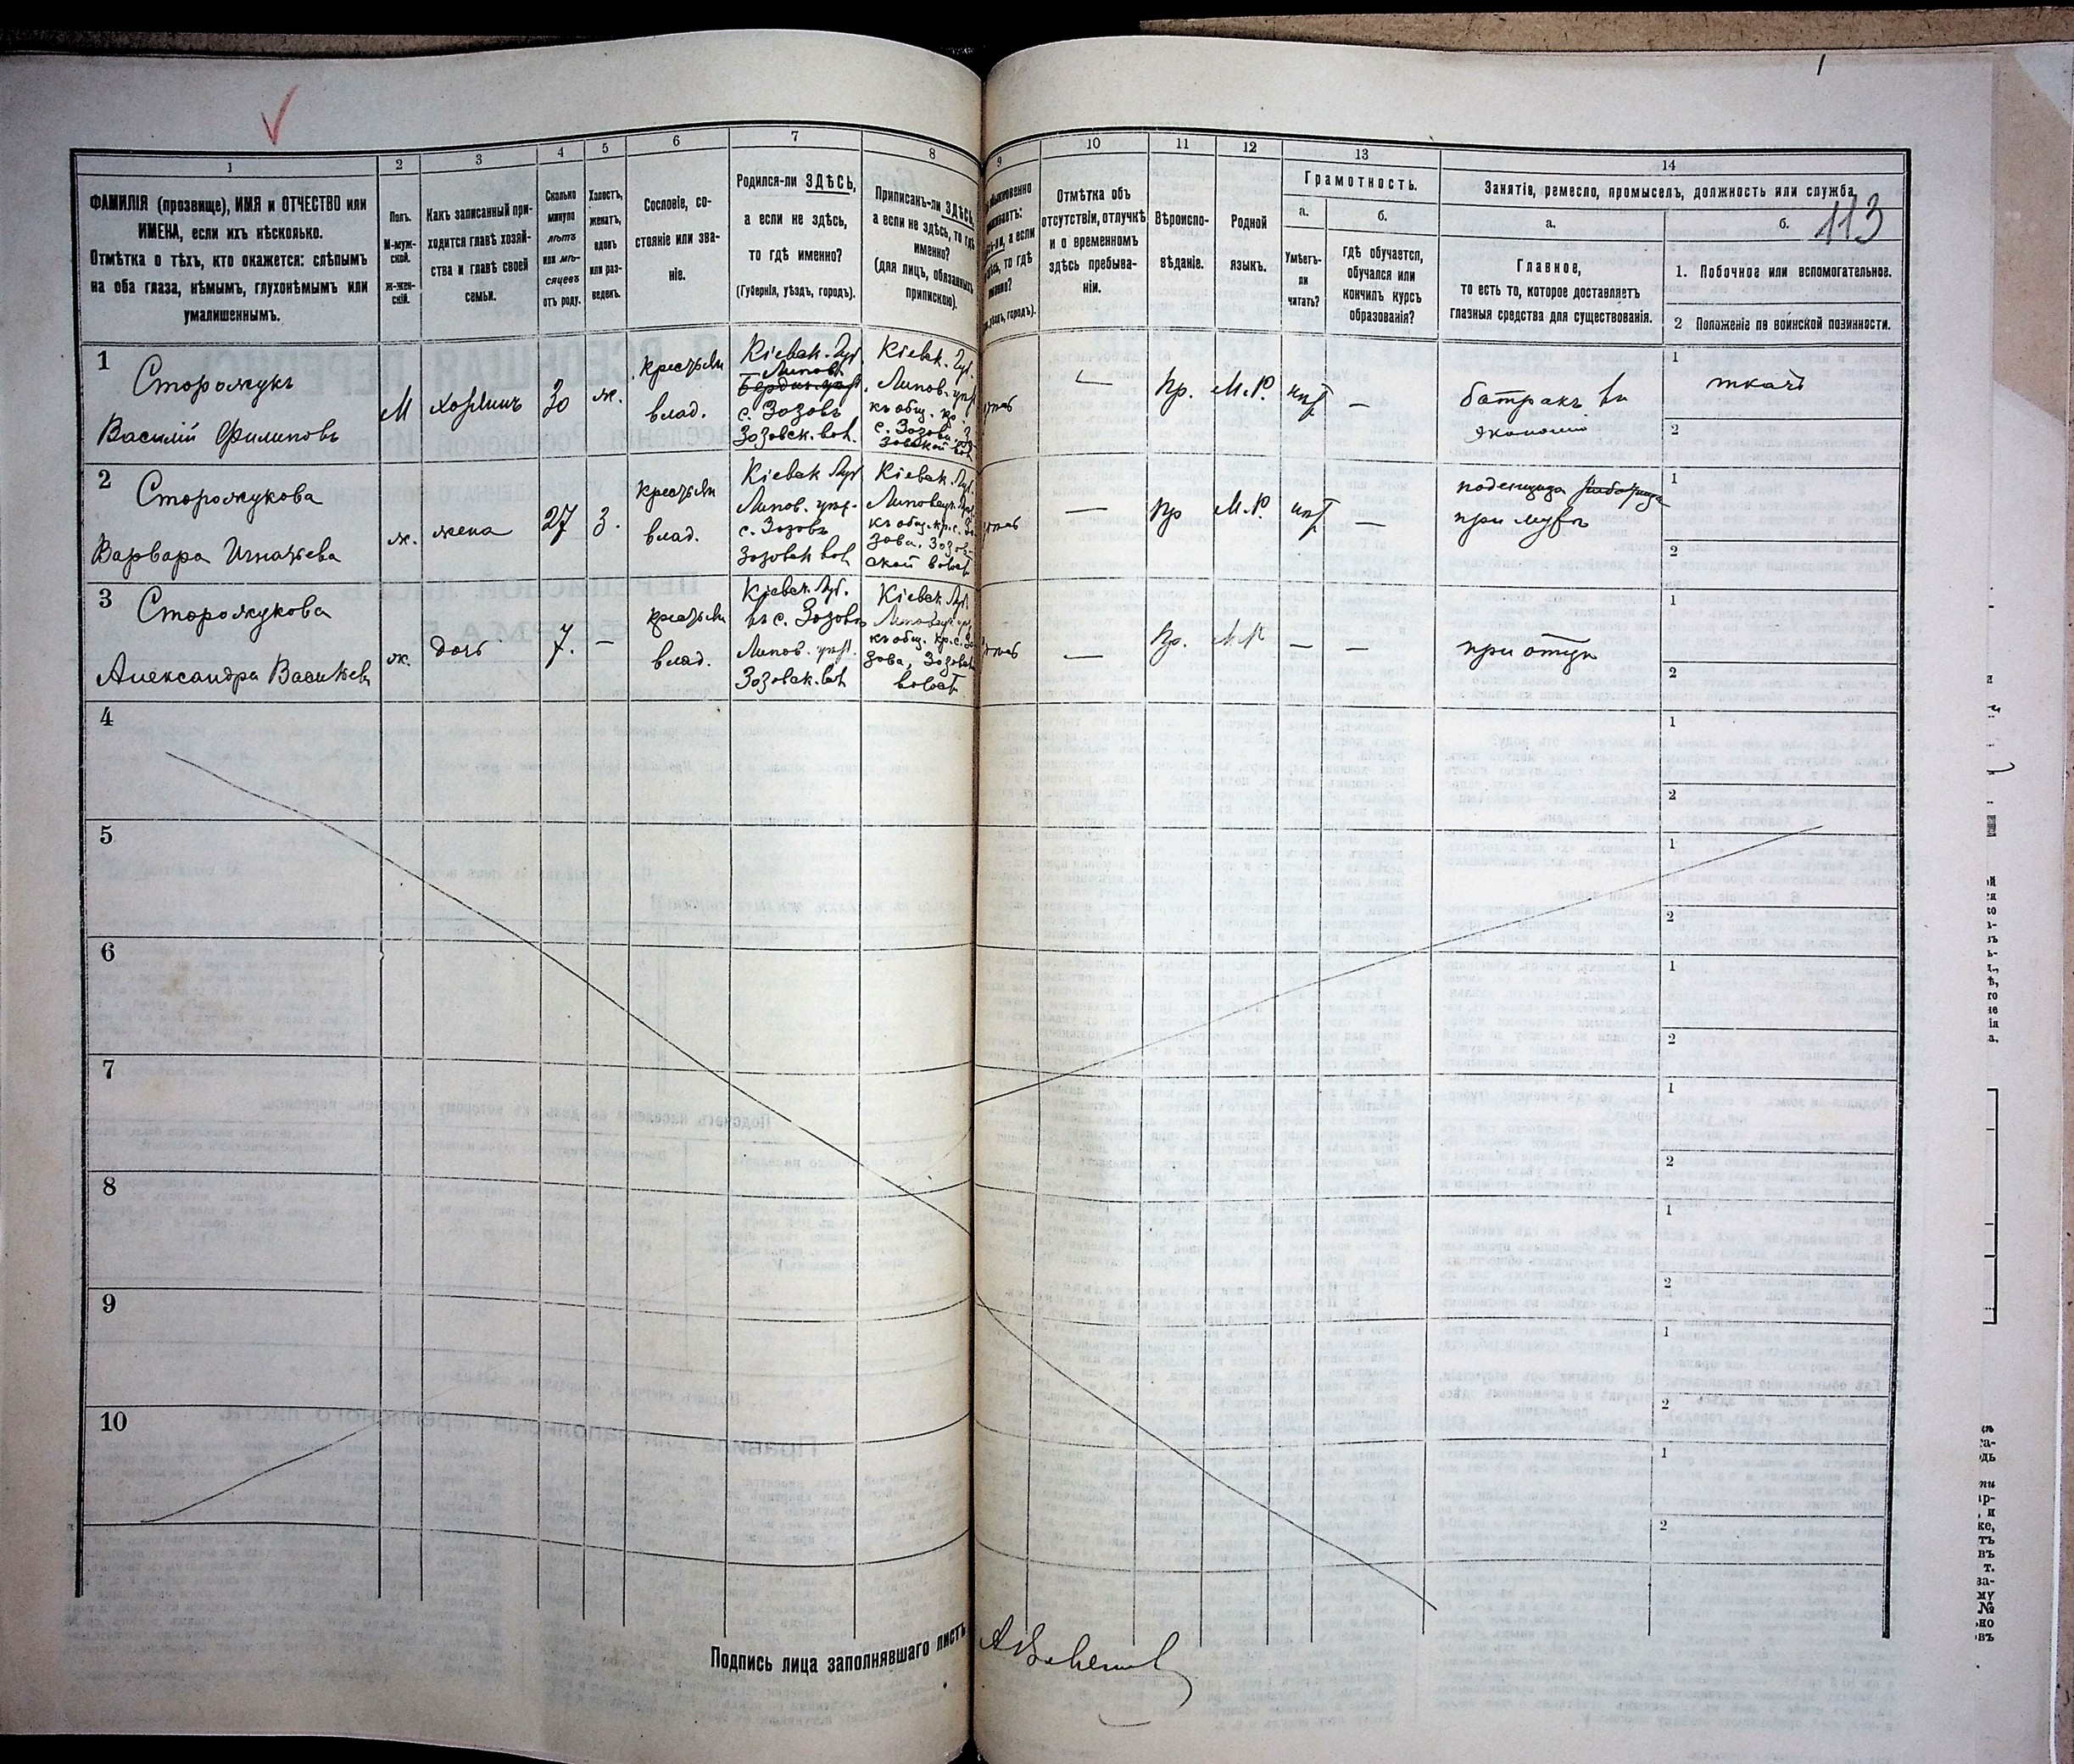 113
1
2
3
4
5
6
7
8
9
10
11
12
13
14
ФАМИЛІЯ (прозвище), ИМЯ и ОТЧЕСТВО или
ИМЕНА, если ихъ нѣсколько.
Отмѣтка о тѣхъ, кто окажется: слѣпымъ
на оба глаза, нѣмымъ, глухонѣмымъ или
умалишеннымъ.
Полъ.
М-муж-
ской.
Ж-жен-
скій.
Какъ записанный при-
ходится главѣ хозяй-
ства и главѣ своей
семьи.
Сколько
минуло
лѣтъ
или мѣ-
сяцевъ
отъ роду.
Холостъ,
женатъ,
вдовъ
или раз-
веденъ.
Сословіе, со-
стояніе или зва-
ніе.
Родился-ли ЗДѢСЬ,
а если не здѣсь,
то гдѣ именно?
(Губернія, уѣздъ, городъ).
Приписанъ-ли ЗДѢСЬ,
а если не здѣсь, то гдѣ
именно?
(для лицъ, обязанныхъ
припискою).
Отмѣтка объ
отсутствіи, отлучкѣ
и о временномъ
здѣсь пребыва-
ніи.
Вѣроиспо-
вѣданіе.
Родной
языкъ.
Грамотность.
а.
Умѣетъ-
ли
читать?
б.
гдѣ обучается,
обучался или
кончилъ курсъ
образованія?
Занятіе, ремесло, промыселъ, должность или служба.
а.
Главное,
то есть то, которое доставляетъ
главныя средства для существованія.
б.
1. Побочное или вспомогательное.
2 Положеніе по воинской повинности.
1
Сторожукъ
Василій Филиповъ
М
хозяинъ
30
ж.
крестьян
влад.
Кіевск. Губ.
Липов.
с. Зозовъ
Зозовск. вол.
Кіевск. Губ.
Липов. уѣз.
къ общ. кр.
с. Зозова Зо-
зовской вол.
—
Пр.
М.Р.
нѣт
—
батракъ въ
экономіи
1
ткачъ
2
2
Сторожукова
Варвара Игнатьева
ж.
жена
27
З.
крестьян
влад.
Кіевск Губ
Липов. уѣз.
с. Зозовъ
Зозовск вол
Кіевск. Губ.
Липовецк. уѣз.
къ общ. кр. с. Зо-
зова. Зозов-
ской волост
—
Пр
М.Р.
нѣт
—
поденщица
при мужѣ
1
2
3
Сторожукова
Александра Васильев
ж.
дочь
7.
—
крестьян
влад.
Кіевск. Губ.
въ с. Зозовъ
Липов. уѣз.
Зозовск. вол
Кіевск. Губ.
Липовецк. уѣз
къ общ. кр. с. Зо-
зова, Зозовск
волост
—
Пр.
М.Р
—
—
при отцѣ
1
2
4
1
2
5
1
2
6
1
2
7
1
2
8
1
2
9
1
2
10
1
2
Подпись лица заполнявшаго листъ